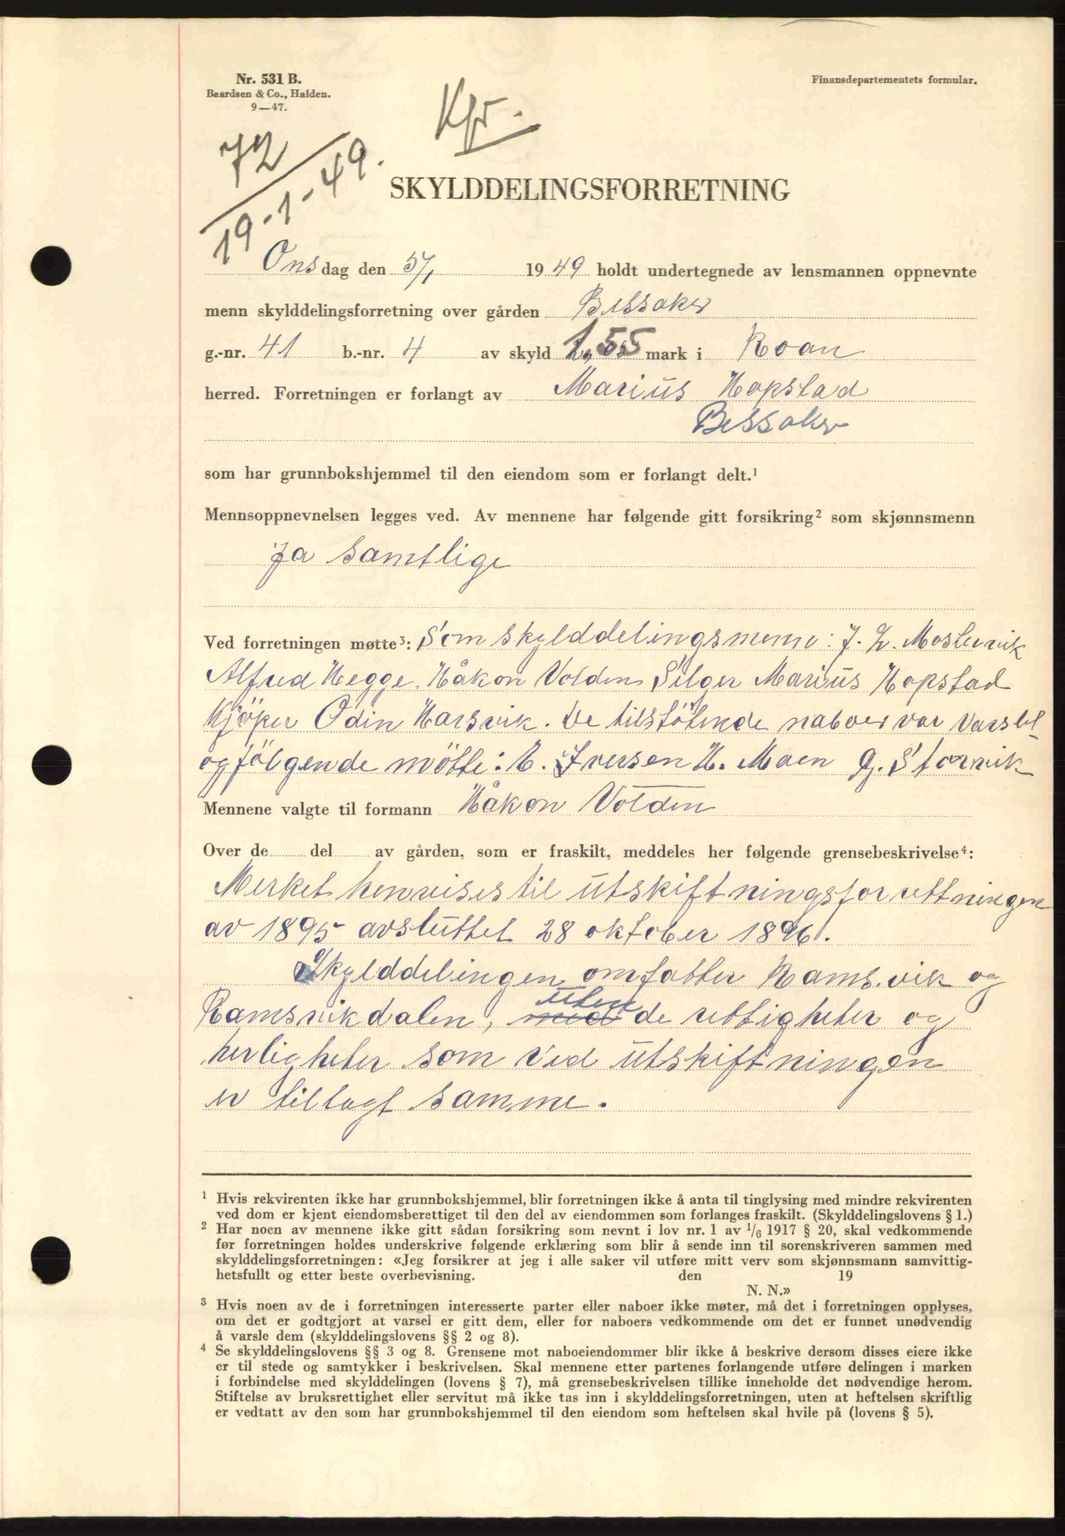 Nr. 531 B.
Baardsen & Co., Halden.
9—47.
Finansdepartementets formular.
Kfr.
72
19-1-49.
SKYLDDELINGSFORRETNING
Onsdag den 5/1 1949 holdt undertegnede av lensmannen oppnevnte
menn skylddelingsforretning over gården Bessaker
g.-nr. 41 b.-nr. 4 av skyld 1,55 mark i Roan
herred. Forretningen er forlangt av Marius Hopstad
Bessaker
som har grunnbokshjemmel til den eiendom som er forlangt delt.¹
Mennsoppnevnelsen legges ved. Av mennene har følgende gitt forsikring² som skjønnsmenn
Ja samtlige
Ved forretningen møtte³: Som skylddelingsmenn: J. L. Mosbervik
Alfred Hegge. Håkon Volden Selger Marius Hopstad
Kjöper Odin Harsvik. De tilstötende naboer var varslet
og fölgende mötte: E. Iversen H. Moen G. Storvik
Mennene valgte til formann Håkon Volden
Over de del av gården, som er fraskilt, meddeles her følgende grensebeskrivelse⁴:
Merket henvises til utskiftningsforrettningen
av 1895 avsluttet 28 oktober 1896.
Skylddelingen omfatter Ramsvik og
Ramsvikdalen, uten ~~med~~ de rettigheter og
herligheter som ved utskiftningen
er tillagt samme.
¹ Hvis rekvirenten ikke har grunnbokshjemmel, blir forretningen ikke å anta til tinglysing med mindre rekvirenten
ved dom er kjent eiendomsberettiget til den del av eiendommen som forlanges fraskilt. (Skylddelingslovens § 1.)
² Har noen av mennene ikke gitt sådan forsikring som nevnt i lov nr. 1 av 1/6 1917 § 20, skal vedkommende
før forretningen holdes underskrive følgende erklæring som blir å sende inn til sorenskriveren sammen med
skylddelingsforretningen: «Jeg forsikrer at jeg i alle saker vil utføre mitt verv som skjønnsmann samvittig-
hetsfullt og etter beste overbevisning. den 19
N. N.»
³ Hvis noen av de i forretningen interesserte parter eller naboer ikke møter, må det i forretningen opplyses,
om det er godtgjort at varsel er gitt dem, eller for naboers vedkommende om det er funnet unødvendig
å varsle dem (skylddelingslovens §§ 2 og 8).
⁴ Se skylddelingslovens §§ 3 og 8. Grensene mot naboeiendommer blir ikke å beskrive dersom disses eiere ikke
er til stede og samtykker i beskrivelsen. Skal mennene etter partenes forlangende utføre delingen i marken
i forbindelse med skylddelingen (lovens § 7), må grensebeskrivelsen tillike inneholde det nødvendige herom.
Stiftelse av bruksrettighet eller servitut må ikke tas inn i skylddelingsforretningen, uten at heftelsen skriftlig
er vedtatt av den som har grunnbokshjemmel til den eiendom som heftelsen skal hvile på (lovens § 5).